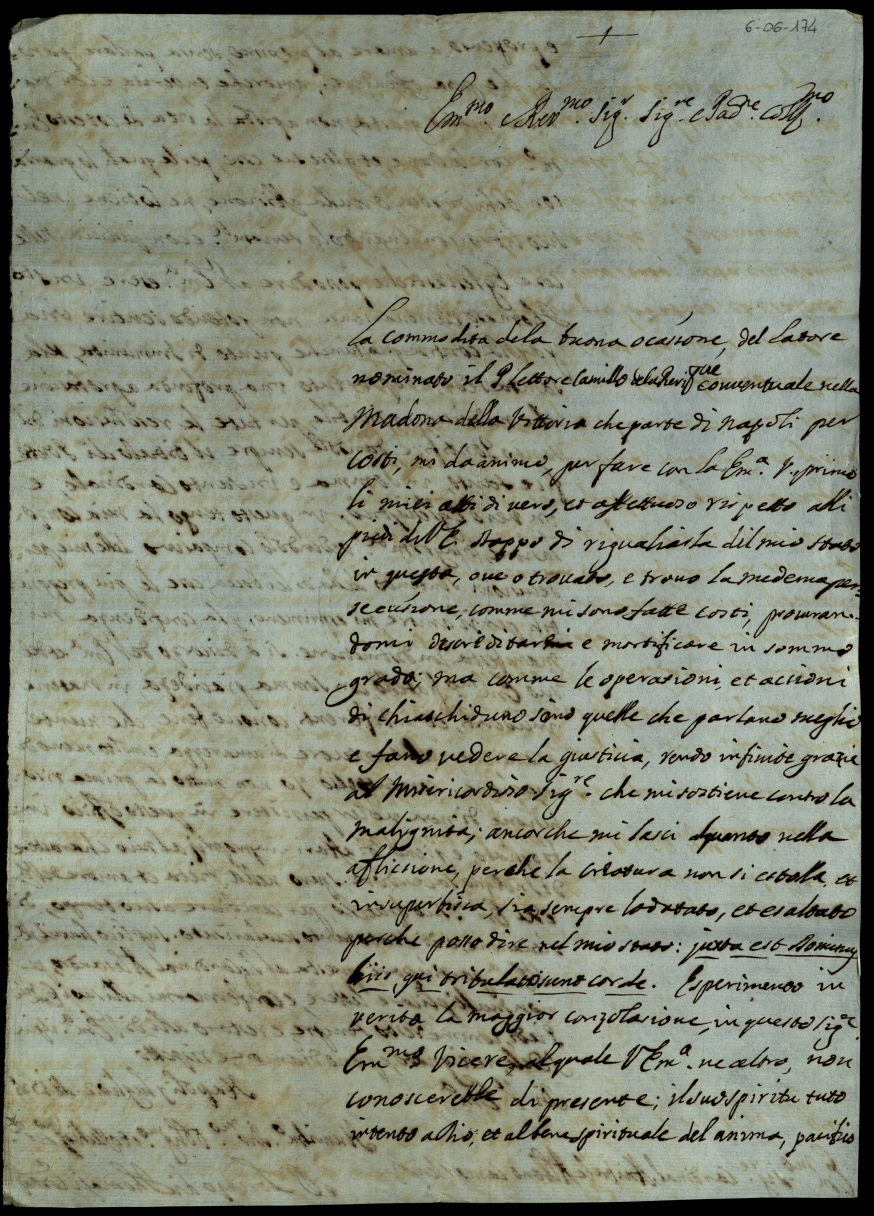 6-06-174
Em.mo e Rev.mo Sig.r Sig.re e Pad.e Coll.mo
La commodita dela buona ocasione, del latore
nominato il P lettore Camillo dela conventuale nella
Madona della Vittoria che parte di Napoli per
costi, mi da animo, per fare con la Em.a V. primo
li miei atti di vero, et affettuoso rispetto alli
piedi di V E. doppo di rigualiarla del mio stato
in questa, ove o trovato, e trovo la medema per-
secusione, comme mi sono fatte costi, procuran-
domi discreditarmi e mortificare in sommo
grado; ma comme le operasioni, et actioni
di chiaschiduno sono quelle che parlano meglio
e fano vedere la giusticia, rendo infinite grazie
al Misericordioso Sig.re che mi sostiene contro la
malignita; ancorche mi lasci alquanto nella
aflicione, perche la creatura non si estolla, et
insuperbisca, sia sempre lodatato, et esaltato
perche posso dire nel mio stato: juxta est Dominus
hiis, qui tribulato sunt corde. Esperimento in
verita la maggior consolasione, in questo Sig.re
Em.mo Vicere, al quale V Em.a ne altro, non
conoscerebbe di presente; il suo spiritu tuto
intento a Dio, et al bene spirituale del anima, pacifico